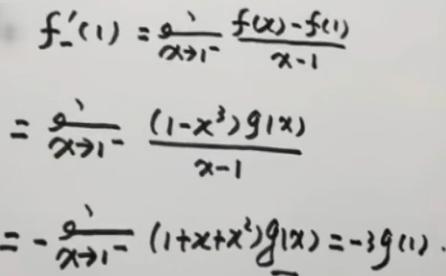 f₋'(1) = lim x→1⁻ (f(x)-f(1))/(x-1)
= lim x→1⁻ ((1-x³)g(x))/(x-1)
= - lim x→1⁻ (1+x+x²)g(x) = -3g(1).